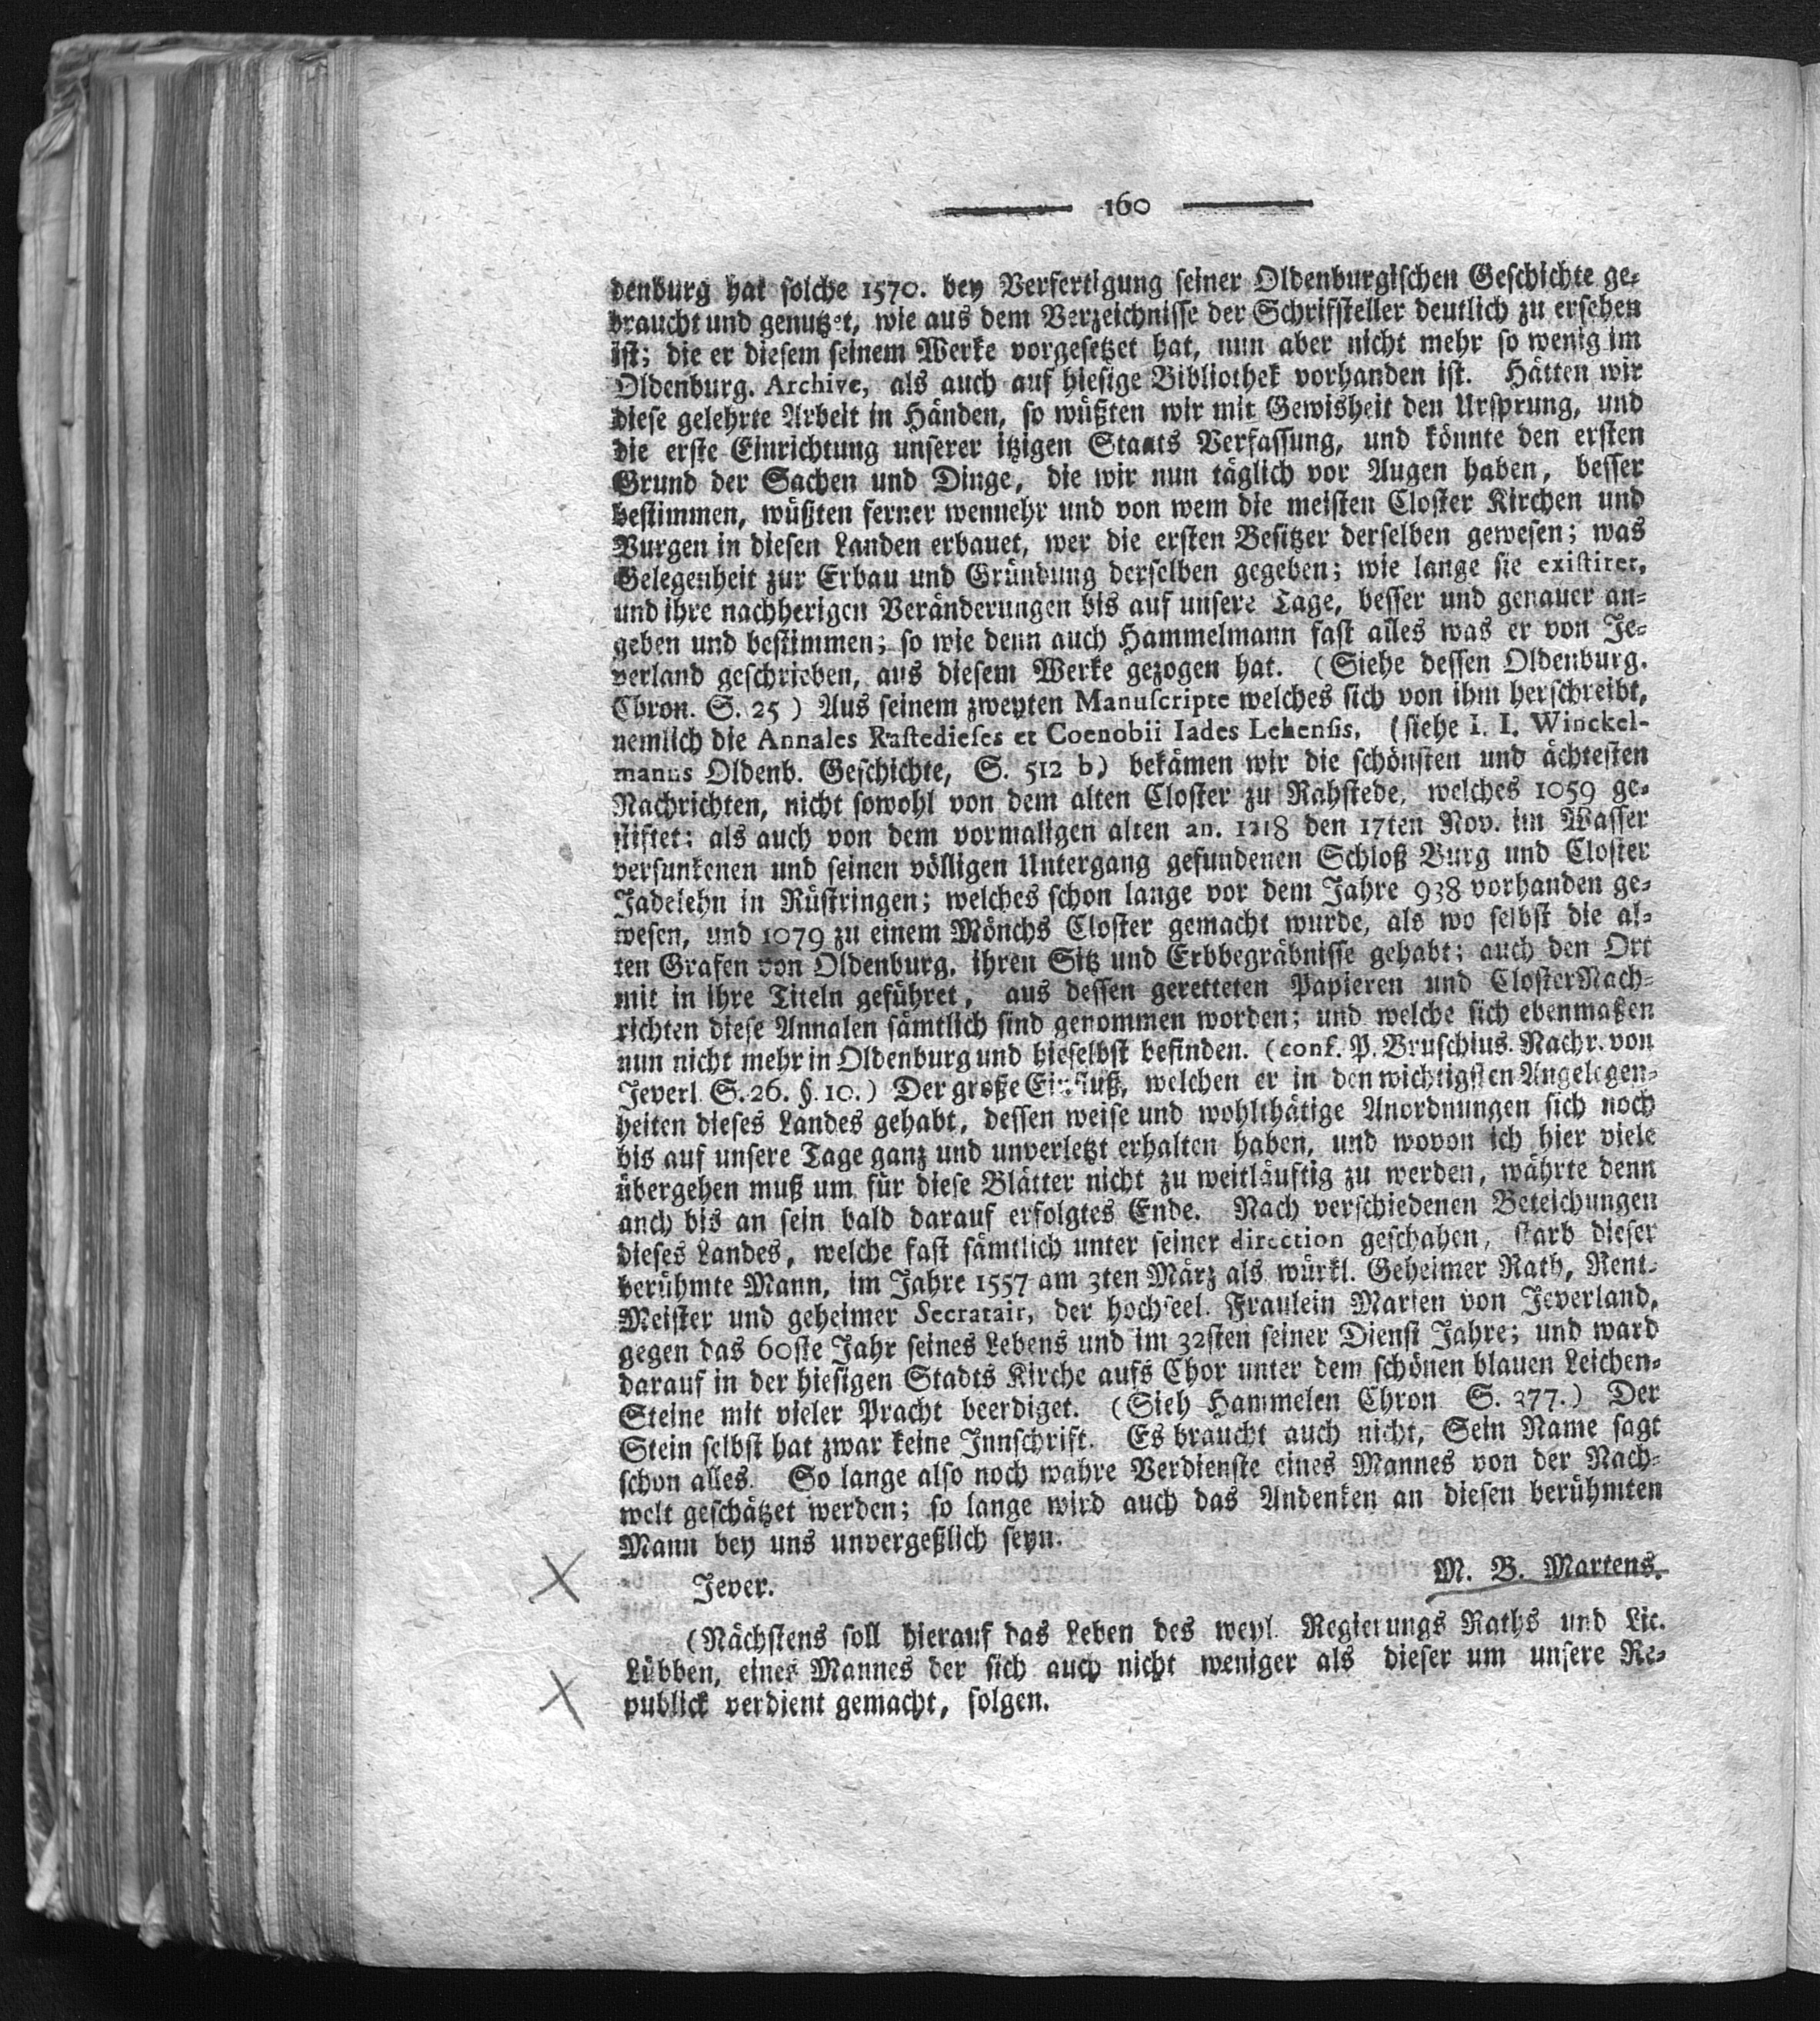 160
denburg hat solche 1570. bey Verfertigung seiner Oldenburgischen Geschichte ge-
braucht und genutzet, wie aus dem Verzeichnisse der Schrifsteller deutlich zu ersehen
ist; die er diesem seinem Werke vorgesetzet hat, nun aber nicht mehr so wenig im
Oldenburg. Archive, als auch auf hiesige Bibliothek vorhanden ist. Hätten wir
diese gelehrte Arbeit in Händen, so wüßten wir mit Gewisheit den Ursprung, und
die erste Einrichtung unserer itzigen Staats Verfassung, und könnte den ersten
Grund der Sachen und Dinge, die wir nun täglich vor Augen haben, besser
bestimmen, wüßten ferner wennehr und von wem die meisten Closter Kirchen und
Burgen in diesen Landen erbauet, wer die ersten Besitzer derselben gewesen; was
Gelegenheit zur Erbau und Gründung derselben gegeben; wie lange sie existiret,
und ihre nachherigen Veränderungen bis auf unsere Tage, besser und genauer an-
geben und bestimmen; so wie denn auch Hammelmann fast alles was er von Je-
verland geschrieben, aus diesem Werke gezogen hat. (Siehe dessen Oldenburg.
Chron. S. 25) Aus seinem zweyten Manuscripte welches sich von ihm herschreibt,
nemlich die Annales Rastedieses et Coenobii Iades Lehensis, (siehe I. I. Winckel-
manns Oldenb. Geschichte, S. 512 b) bekämen wir die schönsten und ächtesten
Nachrichten, nicht sowohl von dem alten Closter zu Rahstede, welches 1059 ge-
stiftet: als auch von dem vormaligen alten an. 1218 den 17ten Nov. im Wasser
versunkenen und seinen völligen Untergang gefundenen Schloß Burg und Closter
Jadelehn in Rüstringen; welches schon lange vor dem Jahre 938 vorhanden ge-
wesen, und 1079 zu einem Mönchs Closter gemacht wurde, als wo selbst die al-
ten Grafen von Oldenburg, ihren Sitz und Erbbegräbnisse gehabt; auch den Ort
mit in ihre Titeln geführet, aus dessen geretteten Papieren und ClosterNach-
richten diese Annalen sämtlich sind genommen worden; und welche sich ebenmaßen
nun nicht mehr in Oldenburg und hieselbst befinden. (conf. P. Bruschius. Nachr. von
Jeverl. S. 26. §. 10.) Der große Einfluß, welchen er in den wichtigsten Angelegen-
heiten dieses Landes gehabt, dessen weise und wohlthätige Anordnungen sich noch
bis auf unsere Tage ganz und unverletzt erhalten haben, und wovon ich hier viele
übergehen muß um für diese Blätter nicht zu weitläuftig zu werden, währte denn
anch bis an sein bald darauf erfolgtes Ende. Nach verschiedenen Beteichungen
dieses Landes, welche fast sämtlich unter seiner direction geschahen, starb dieser
berühmte Mann, im Jahre 1557 am 3ten März als würkl. Geheimer Rath, Rent-
Meister und geheimer Secratair, der hochseel. Fraulein Marien von Jeverland,
gegen das 60ste Jahr seines Lebens und im 32sten seiner Dienst Jahre; und ward
darauf in der hiesigen Stadts Kirche aufs Chor unter dem schönen blauen Leichen-
Steine mit vieler Pracht beerdiget. (Sieh Hammelen Chron S. 377.) Der
Stein selbst hat zwar keine Innschrift. Es braucht auch nicht, Sein Name sagt
schon alles. So lange also noch wahre Verdienste eines Mannes von der Nach-
welt geschätzet werden; so lange wird auch das Andenken an diesen berühmten
Mann bey uns unvergeßlich seyn.
Jever. M. B. Martens.
(Nächstens soll hierauf das Leben des weyl. Regierungs Raths und Lic.
Lübben, eines Mannes der sich auch nicht weniger als dieser um unsere Re-
publick verdient gemacht, folgen.